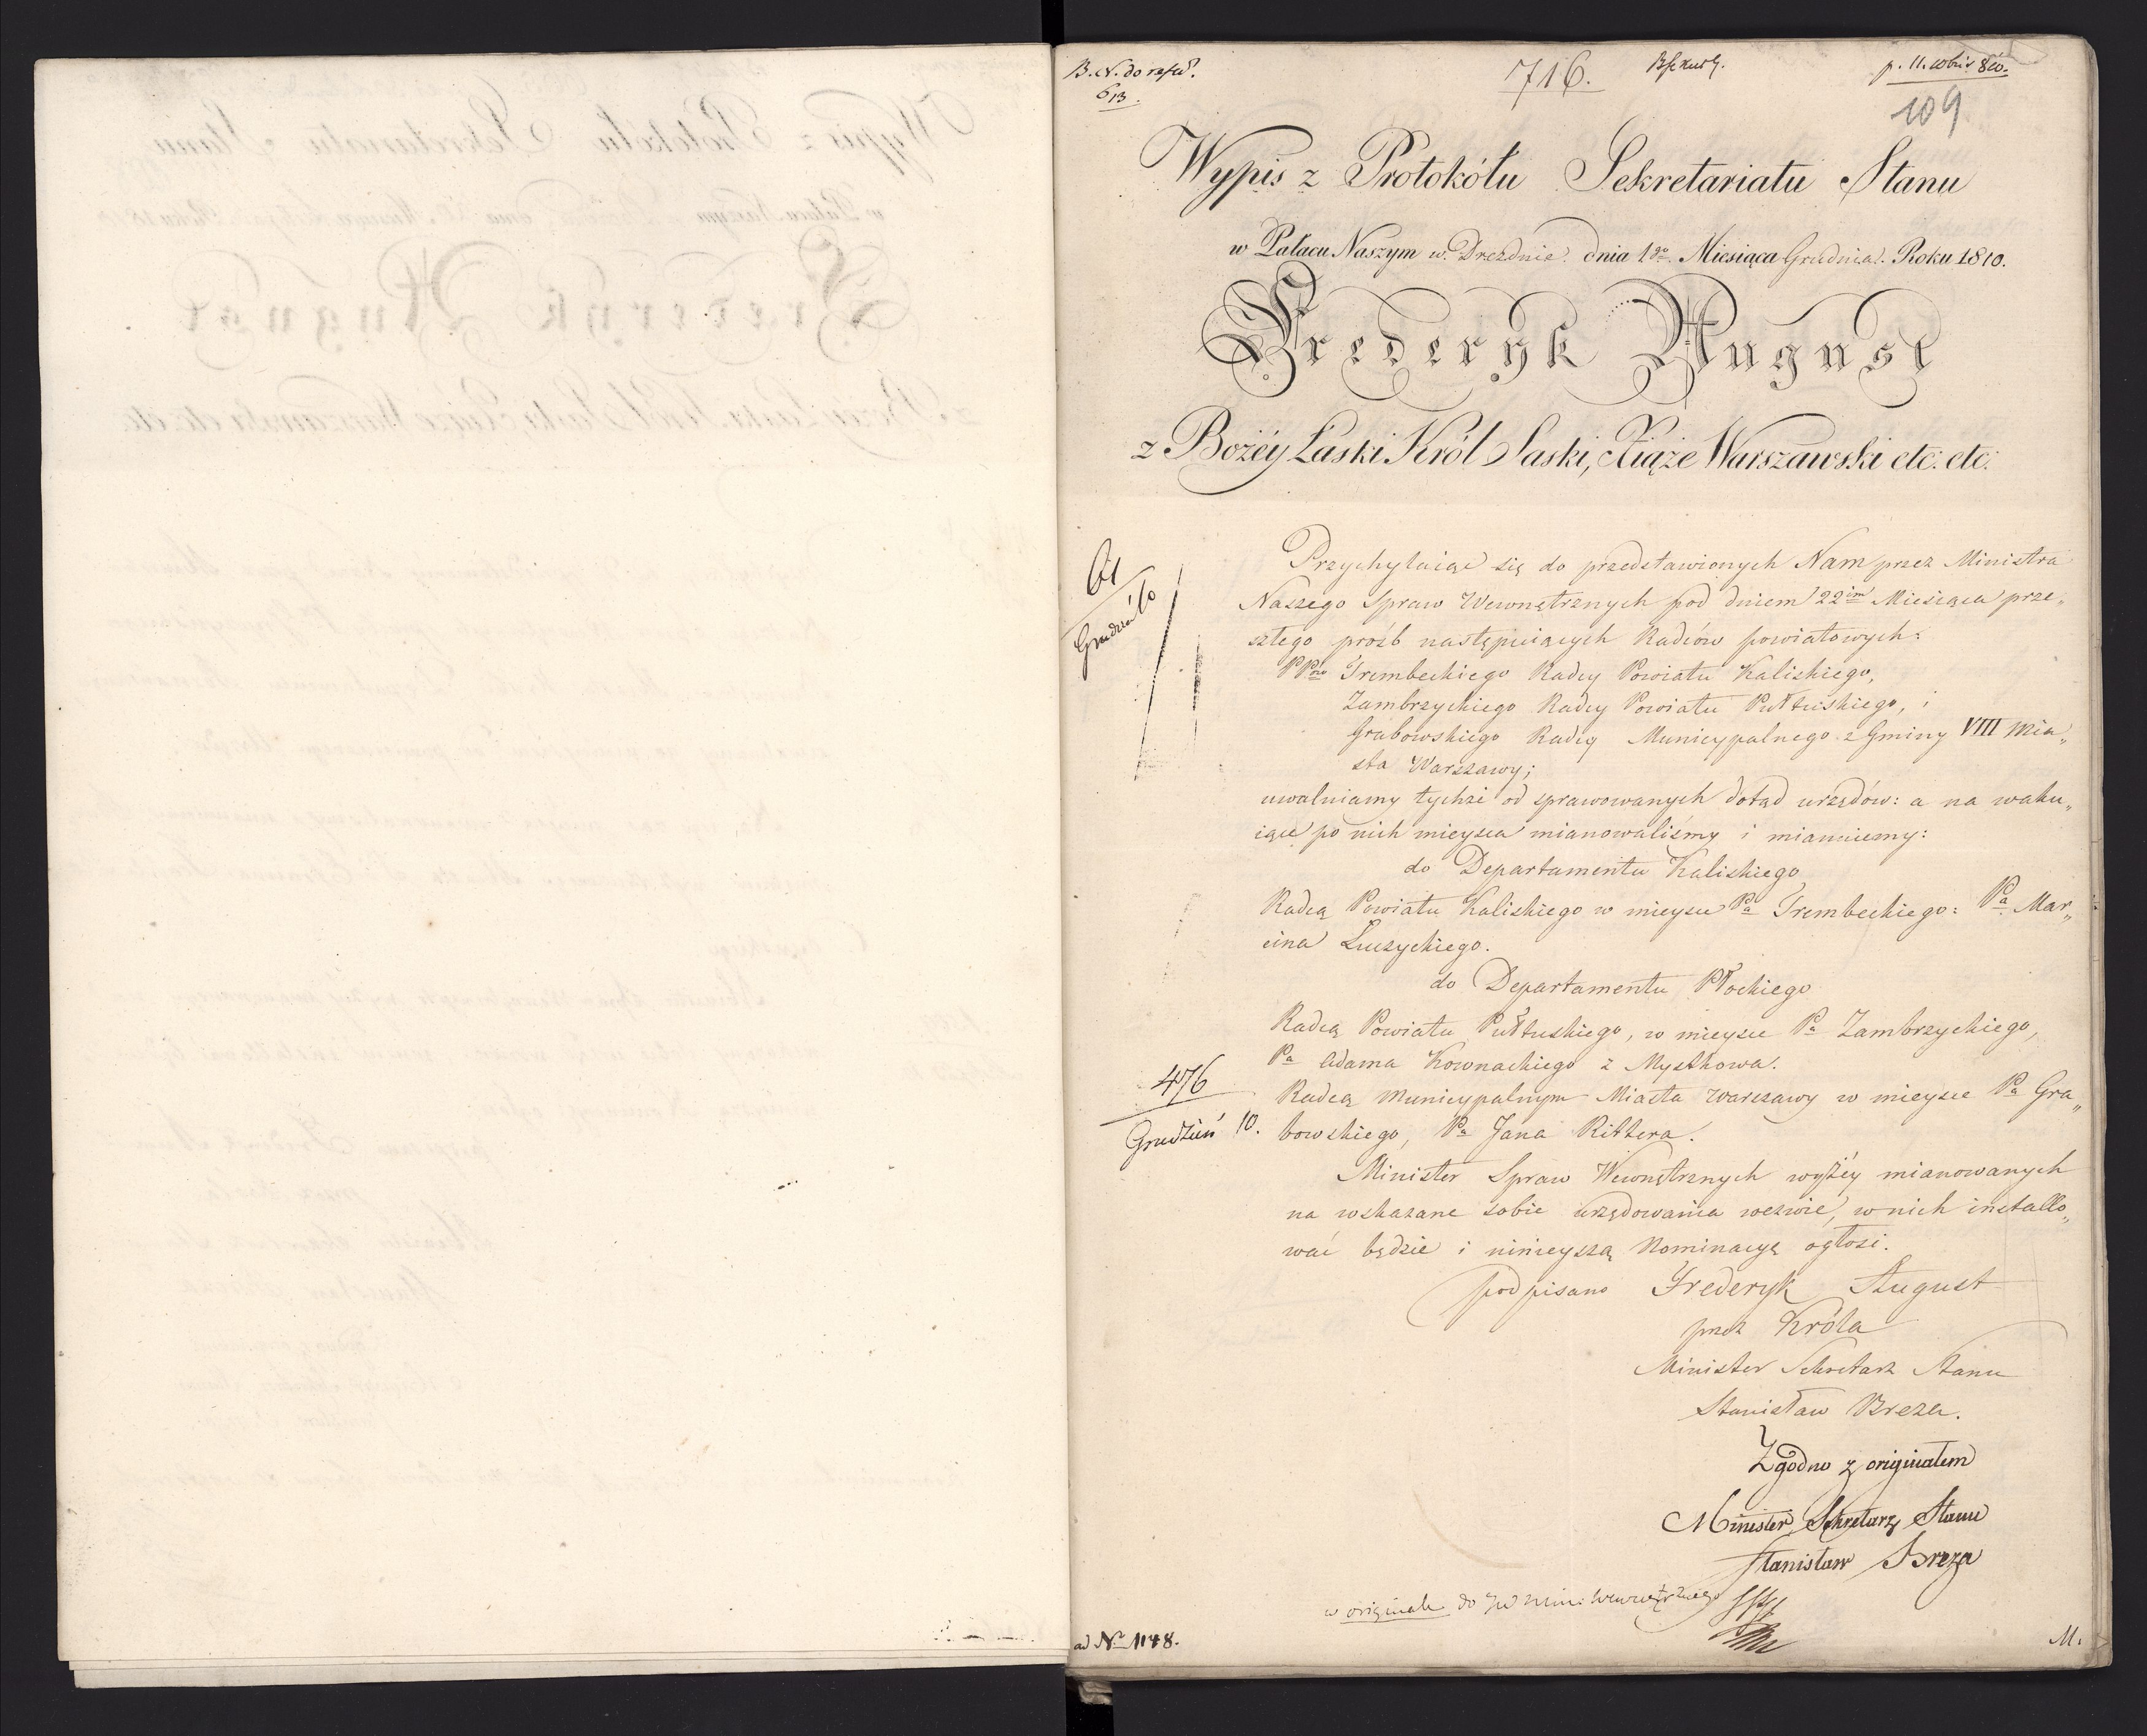 B. N. do
613.
716.
109
Wypis z Protokółu Sekretariatu Stanu
w Pałacu Naszym w Dreźdnie dnia 1go Miesiąca Grudnia Roku 1810.
Frederyk August
z Bożéy Łaski Król Saski, Xiąże Warszawski etc. etc.
61
Grudzień 10
Przychylaiąc się do przedstawionych Nam przez Ministra
Naszego Spraw Wewnętrznych pod dniem 22im Miesiąca prze„
szłego próźb następuiących Radców powiatowych:
PPów Trembeckiego Radcy Powiatu Kaliskiego,
Zambrzyckiego Radcy Powiatu Pułtuskiego, i
Grabowskiego Radcy Municypalnego z Gminy VIII Mia„
sta Warszawy;
uwalniamy tychże od sprawowanych dotąd urzędów: a na waku„
iące po nich mieysca mianowaliśmy i mianuiemy:
do Departamentu Kaliskiego
Radcą Powiatu Kaliskiego w mieysce Pa Trembeckiego: Pa Mar„
cina Łuczyckiego.
do Departamentu Płockiego
Radcą Powiatu Pułtuskiego, w mieysce Pa Zambrzyckiego,
Pa Adama Kownackiego z Mystkowa.
476
Grudzień 10.
Radcą Municypalnym Miasta Warszawy w mieysce Pa Gra„
bowskiego, Pa Jana Rittera.
Minister Spraw Wewnętrznych wyżéy mianowanych
na wskazane sobie urzędowania wezwie, w nich installo„
wać będzie i ninieyszą Nominacyę ogłosi.
podpisano Frederyk August
przez Króla
Minister Sekretarz Stanu
Stanisław Breza.
Zgodno z originałem
Minister Sekretarz Stanu
Stanisław Breza
w originale do JW Mini: Wewnętrznego
ad No 1148.
M.